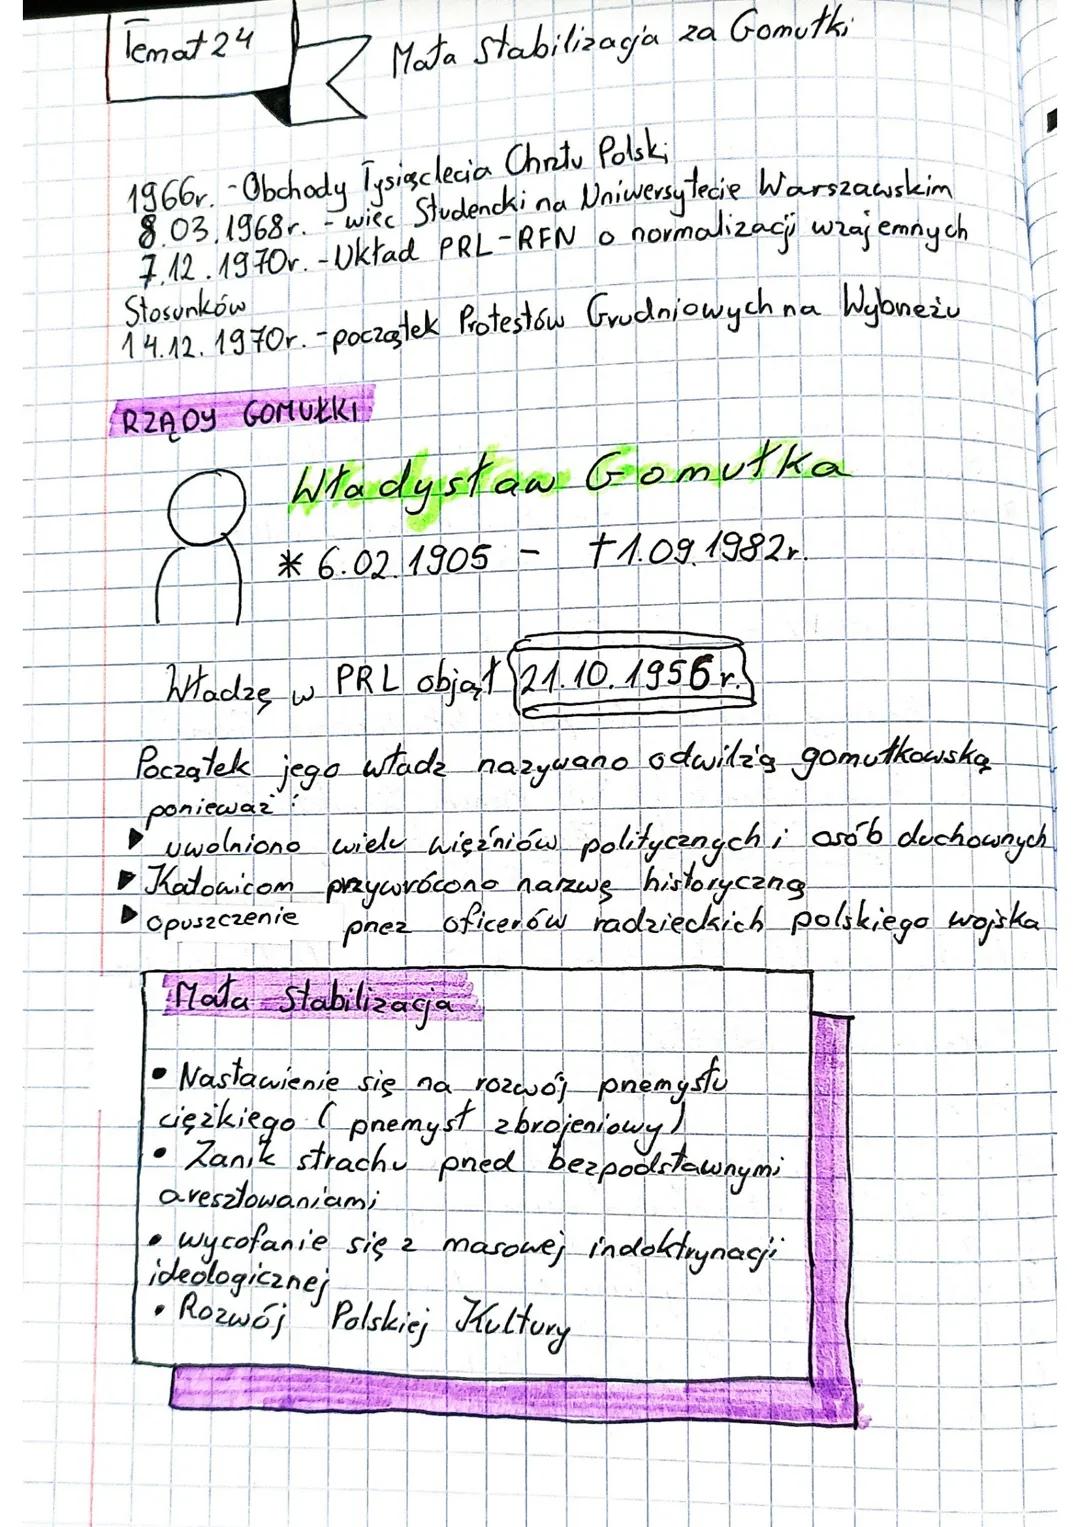 Temat 24
Mała stabilizacja za Gomułki
1966r. - Obchody Tysiąclecia Chrztu Polski
8.03.1968r. - wiec Studencki na Uniwersytecie Warszawskim
7.12.1970r. - Układ PRL-RFN o normalizacji wzajemnych
Stosunków
14.12.1970r. - początek Protestów Grudniowych na Wybrzeżu
RZĄDY GOMUŁKI
Władysław Gomułka
* 6.02.1905 - †1.09.1982r.
Władzę w PRL objął 21.10.1956r.
Początek jego władz nazywano odwilżą gomułkowską
ponieważ:
▶ uwolniono wielu więźniów politycznych i osób duchownych
▶ Katowicom przywrócono nazwę historyczną
▶ opuszczenie przez oficerów radzieckich polskiego wojska
Mała Stabilizacja
• Nastawienie się na rozwój przemysłu
ciężkiego (przemysł zbrojeniowy)
• Zanik strachu przed bezpodstawnymi
aresztowaniami
• wycofanie się z masowej indoktrynacji
ideologicznej
• Rozwój Polskiej Kultury